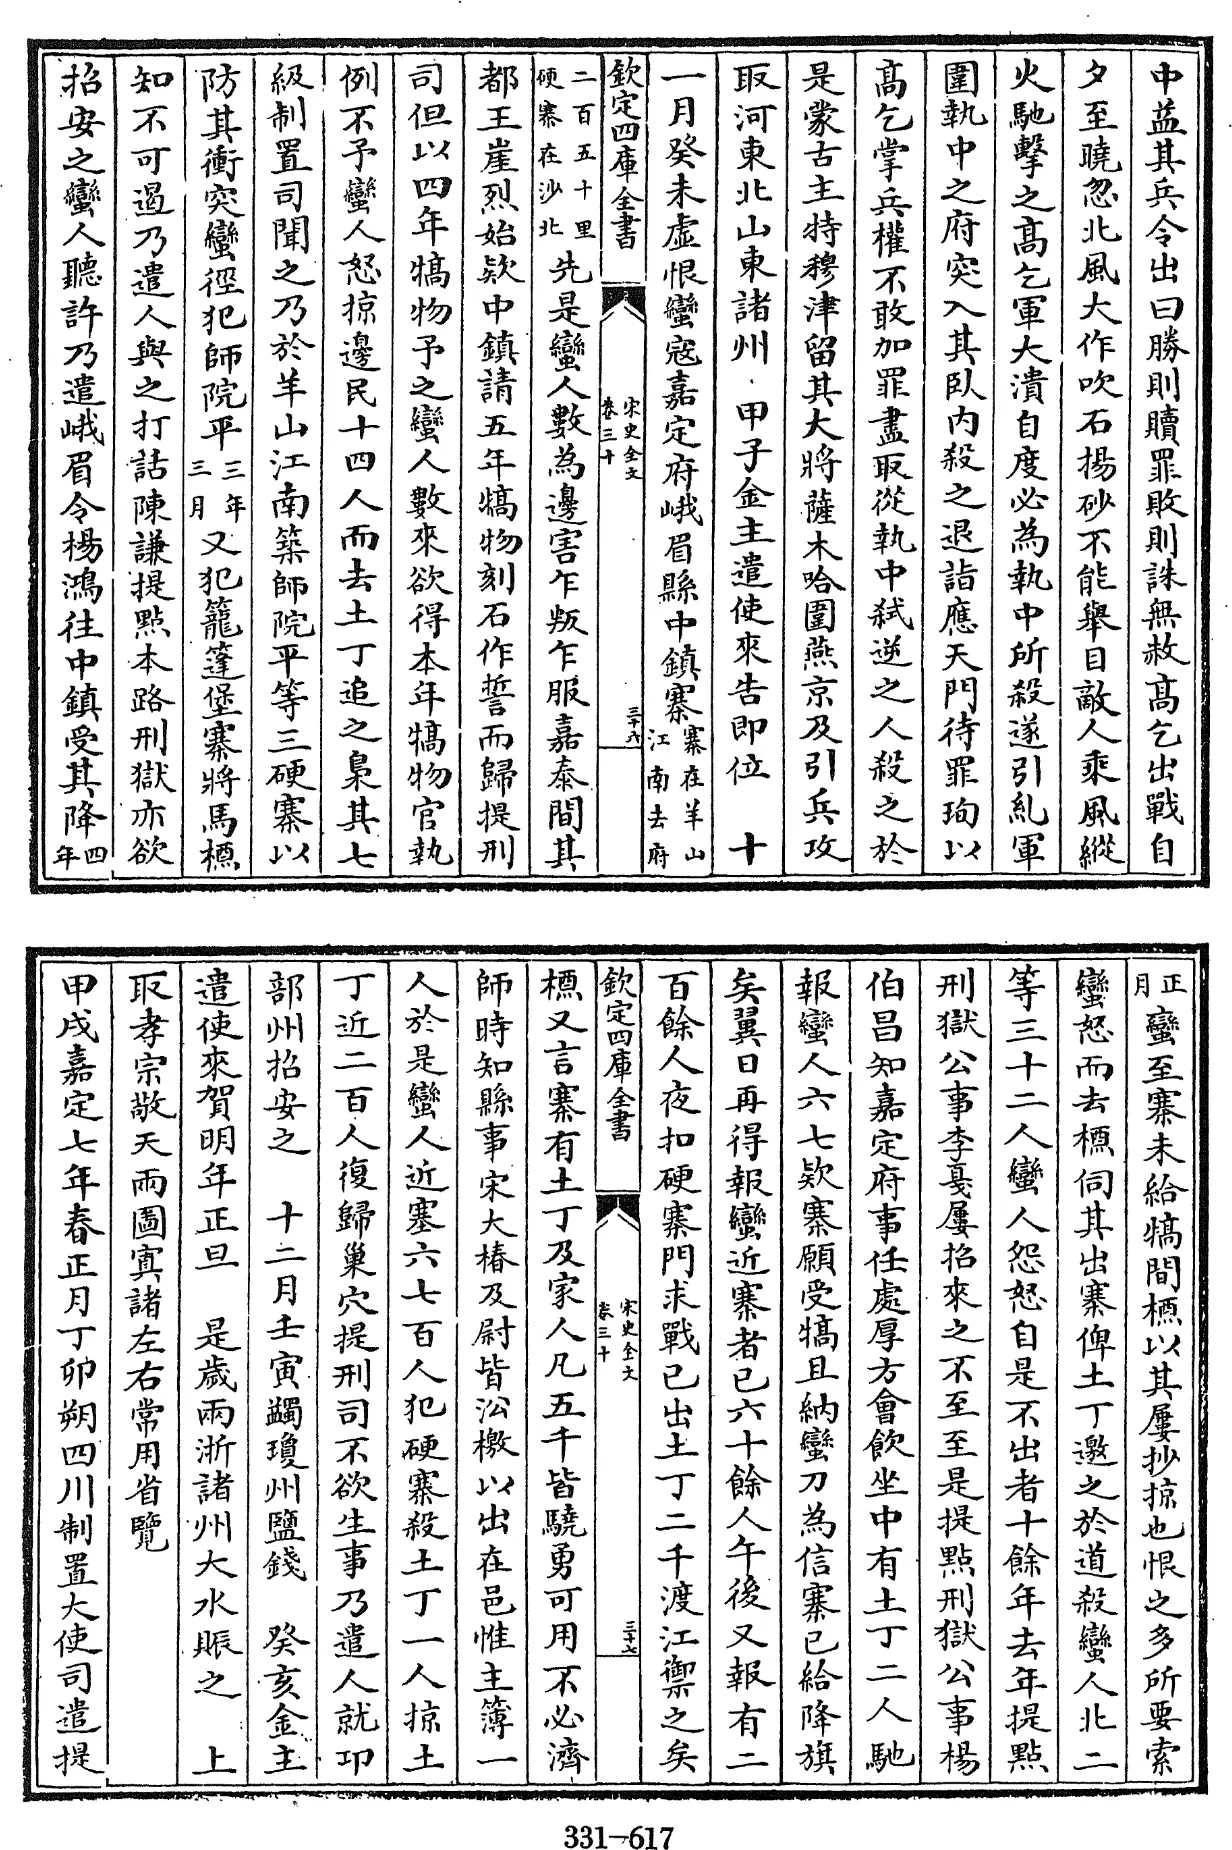 中益其兵令出曰勝則贖罪敗則誅無赦高乞出戰自
夕至曉忽北風大作吹石揚砂不能舉目敵人乘風縱
火馳擊之高乞軍大潰自度必為執中所殺遂引乣軍
圍執中之府突入其臥內殺之退詣應天門待罪珣以
高乞掌兵權不敢加罪盡取從執中弒逆之人殺之於
是蒙古主特穆津留其大將薩木哈圍燕京及引兵攻
取河東北山東諸州　甲子金主遣使來告即位　十
一月癸未虛恨蠻寇嘉定府峨眉縣中鎮寨寨在羊山江南去府
欽定四庫全書
宋史全文
卷三十
三十六
二百五十里硬寨在沙北先是蠻人數為邊害乍叛乍服嘉泰間其
都王崖烈始欵中鎮請五年犒物刻石作誓而歸提刑
司但以四年犒物予之蠻人數來欲得本年犒物官執
例不予蠻人怒掠邊民十四人而去土丁追之梟其七
級制置司聞之乃於羊山江南築師院平等三硬寨以
防其衝突蠻徑犯師院平三年三月又犯籠蓬堡寨將馬槱
知不可遏乃遣人與之打話陳謙提點本路刑獄亦欲
招安之蠻人聽許乃遣峨眉令楊鴻往中鎮受其降四年
正月蠻至寨未給犒間槱以其屢抄掠也恨之多所要索
蠻怒而去槱伺其出寨俾土丁邀之於道殺蠻人北二
等三十二人蠻人怨怒自是不出者十餘年去年提點
刑獄公事李㦷屢招來之不至至是提點刑獄公事楊
伯昌知嘉定府事任處厚方會飲坐中有土丁二人馳
報蠻人六七欵寨願受犒且納蠻刀為信寨已給降旗
矣翼日再得報蠻近寨者已六十餘人午後又報有二
百餘人夜扣硬寨門求戰已出土丁二千渡江禦之矣
欽定四庫全書
宋史全文
卷三十
三十七
槱又言寨有土丁及家人凡五千皆驍勇可用不必濟
師時知縣事宋大椿及尉皆沿檄以出在邑惟主簿一
人於是蠻人近塞六七百人犯硬寨殺土丁一人掠土
丁近二百人復歸巢穴提刑司不欲生事乃遣人就邛
部州招安之　十二月壬寅蠲瓊州鹽錢　癸亥金主
遣使來賀明年正旦　是歲兩浙諸州大水賑之　上
取孝宗敬天兩圖寘諸左右常用省覽
甲戌嘉定七年春正月丁卯朔四川制置大使司遣提
331-617